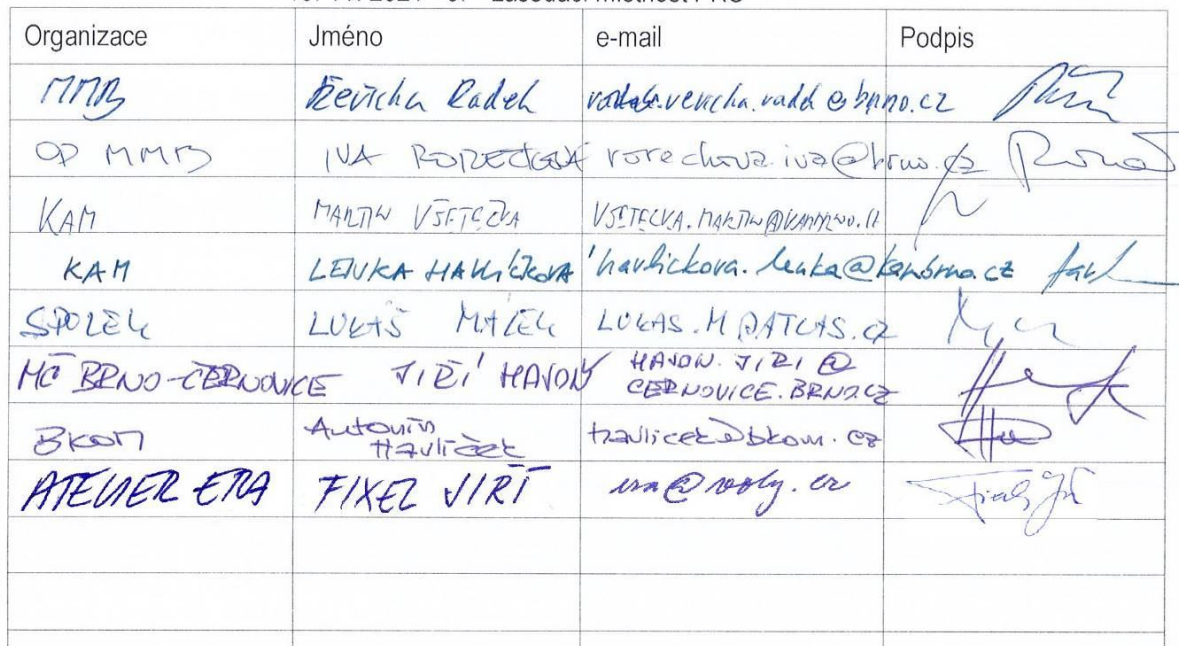 Organizace Jméno e-mail Podpis
MMB Řeřicha Radek
OP MMB IVA
KAM MARTIN VŠETEČKA
KAM LENKA HAVLÍČKOVÁ havlickova.lenka@kambrno.cz
SPOLEK LUKÁŠ MÁLEK LUKAS.M@ATLAS.CZ
MČ BRNO-ČERNOVICE JIŘÍ HAJON HAJON.JIRI@
CERNOVICE.BRNO.CZ
BKOM Antonín
Havlíček havlicek@bkom.cz
ATELIER ERA FIXEL JIŘÍ